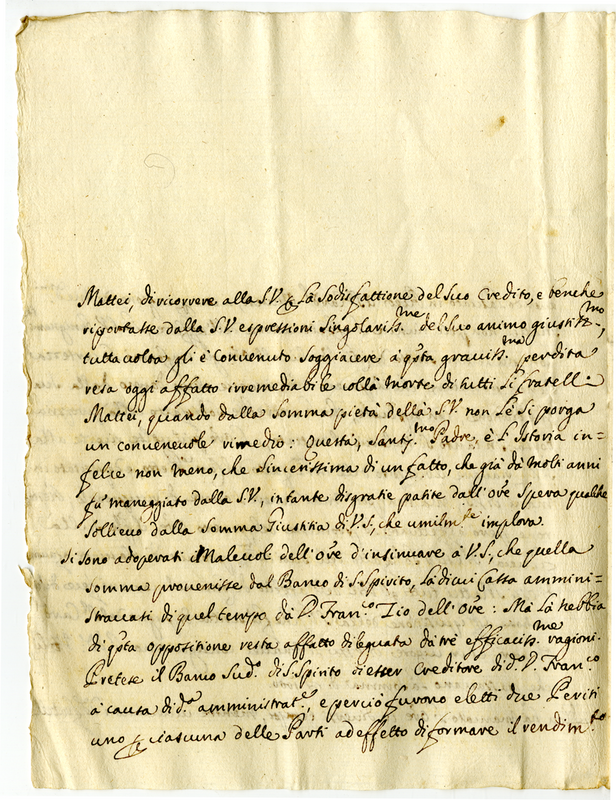 Mattei, di ricorrere alla S.V. p La Sodisfattione del Suo Credito, e benche
riportasse dalla S.V. espressioni Singolariss.me del Suo animo giustiss.mo,
tuttauolta gli è Conuenuto Soggiacere à qsta grauiss.ma perdita
resa oggi affatto irremediabile colla morte di tutti Si fratelli
Mattei, quando dalla Somma pietà della S.V. non Le Si porga
un conueneuole rimedio: Questa, Santiss.mo Padre, è L'Istoria in=
felice non meno, che Sincerissima di un fatto, che già da molti anni
fù maneggiato dalla S.V., in tante disgratie patite dall'Ore Spera qualche
Sollieuo dalla Somma Giustitia di V.S., che umilmte implora.
Si Sono adoperati i Maleuoli dell'Ore d'insinuare à V.S., che quella
Somma prouenisse dal Banco di S. Spirito, La di cui Cassa ammini=
strauasi di quel tempo da D. Fran.co Zio dell'Ore: Mà La nebbia
di qsta oppositione resta affatto dileguata da trè efficaciss.me ragioni.
Pretese il Banco Sud.o di S. Spirito di esser Creditore di d.o D. Fran.co
à causa di d.a amministrat.e, e perciò furono eletti due Periti
uno p ciascuna delle Parti ad effetto di formare il rendim.to